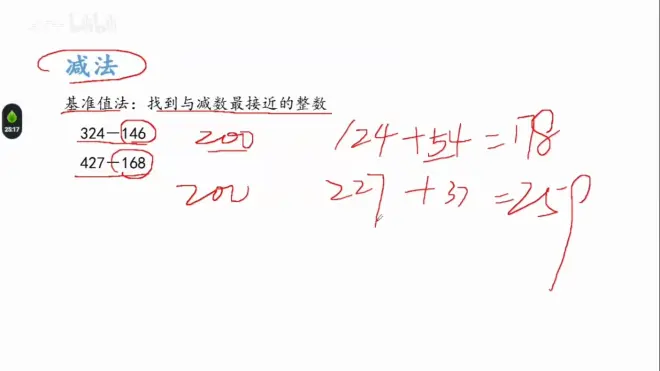 bilibili
减法
基准值法：找到与减数最接近的整数
25:17
324－146 200 124+54=178
427－168 200 227+37=259